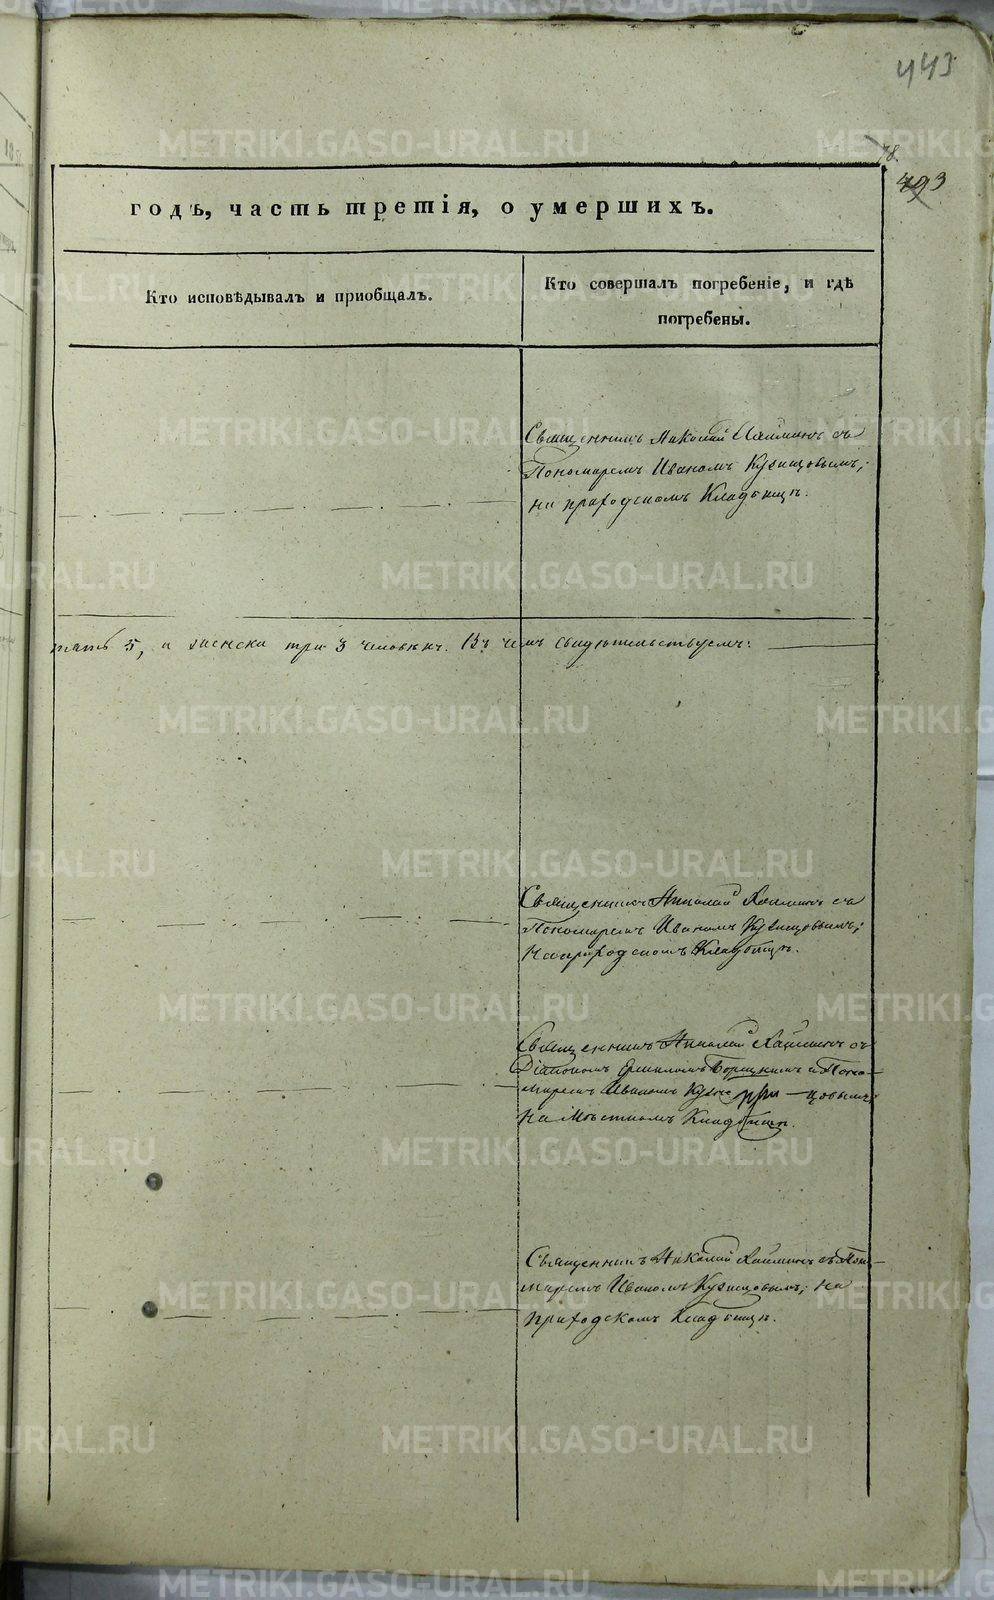 443
78.
годъ, часть третія, о умершихъ.
Кто исповѣдывалъ и приобщалъ.
Кто совершалъ погребеніе, и гдѣ
погребены.
Священникъ Николай съ
Пономаремъ Иваномъ Кузнецовымъ;
на приходскомъ Кладбищѣ.
5, а женска три 3 человѣкъ. Въ чемъ свидѣтельствуемъ:
Священникъ Николай съ
Пономаремъ Иваномъ Кузнецовымъ;
на приходскомъ Кладбищѣ.
Священникъ Николай съ
Діакономъ и Поно-
маремъ Иваномъ Кузне-цовымъ;
на Мѣстномъ Кладбищѣ.
Священникъ Николай съ Поно-
маремъ Иваномъ Кузнецовымъ; на
приходскомъ Кладбищѣ.
METRIKI.GASO-URAL.RU